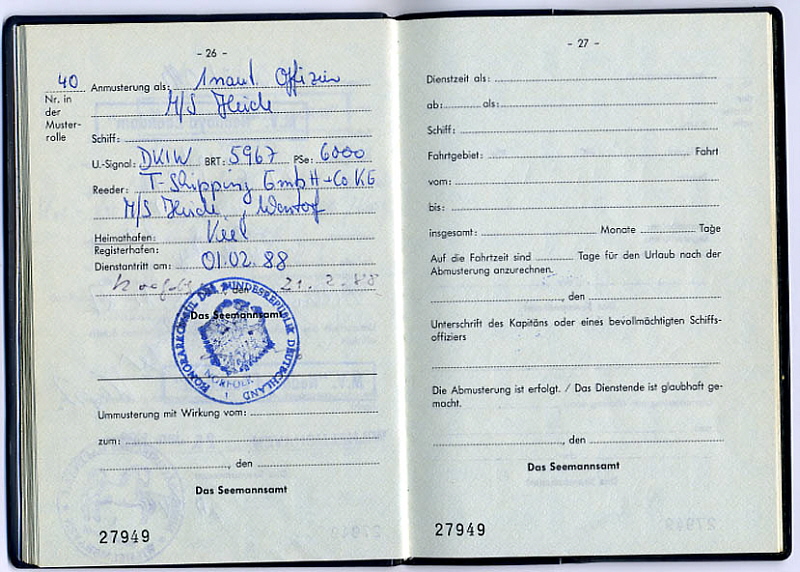 - 26 -
40 Anmusterung als: 1 naut. Offizier
Nr. in der Muster-rolle
M/S Heide
Schiff:
U.-Signal: DKIW BRT: 5967 PSe: 6000
Reeder: T-Shipping GmbH + Co KG
M/S Heide, Wentorf
Heimathafen: Kiel
Registerhafen:
Dienstantritt am: 01.02.88
Norfolk, den 21.2.88
Das Seemannsamt
HONORARKONSUL DER BUNDESREPUBLIK DEUTSCHLAND
NORFOLK
1
Ummusterung mit Wirkung vom:
zum:
, den
Das Seemannsamt
27949
- 27 -
Dienstzeit als:
ab: als:
Schiff:
Fahrtgebiet: Fahrt
vom:
bis:
insgesamt: Monate Tage
Auf die Fahrtzeit sind Tage für den Urlaub nach der
Abmusterung anzurechnen.
, den
Unterschrift des Kapitäns oder eines bevollmächtigten Schiffs-
offiziers
Die Abmusterung ist erfolgt. / Das Dienstende ist glaubhaft ge-
macht.
, den
Das Seemannsamt
27949